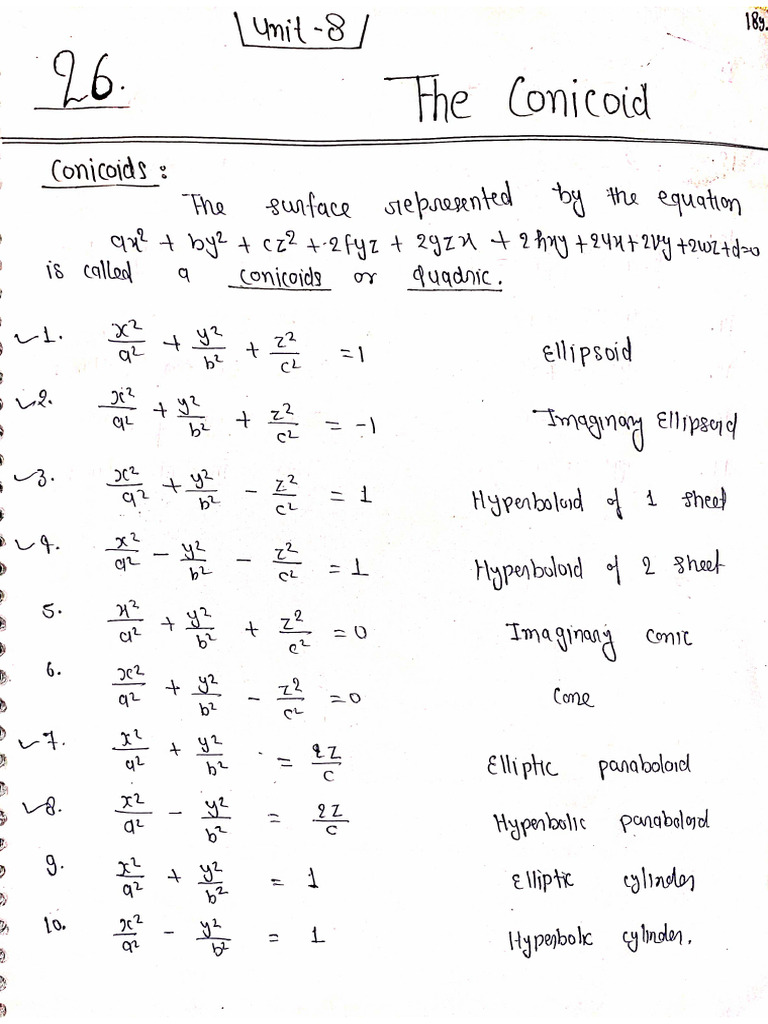 Unit - 8
189.
26.
The Conicoid
Conicoids :
The surface represented by the equation
ax² + by² + cz² + 2fyz + 2gzx + 2hxy + 2ux + 2vy + 2wz + d=0
is called a conicoids or quadric.
1. x²/a² + y²/b² + z²/c² = 1 Ellipsoid
2. x²/a² + y²/b² + z²/c² = -1 Imaginary Ellipsoid
3. x²/a² + y²/b² - z²/c² = 1 Hyperboloid of 1 sheet
4. x²/a² - y²/b² - z²/c² = 1 Hyperboloid of 2 sheet
5. x²/a² + y²/b² + z²/c² = 0 Imaginary conic
6. x²/a² + y²/b² - z²/c² = 0 Cone
7. x²/a² + y²/b² = 2z/c Elliptic paraboloid
8. x²/a² - y²/b² = 2z/c Hyperbolic paraboloid
9. x²/a² + y²/b² = 1 Elliptic cylinder
10. x²/a² - y²/b² = 1 Hyperbolic cylinder.